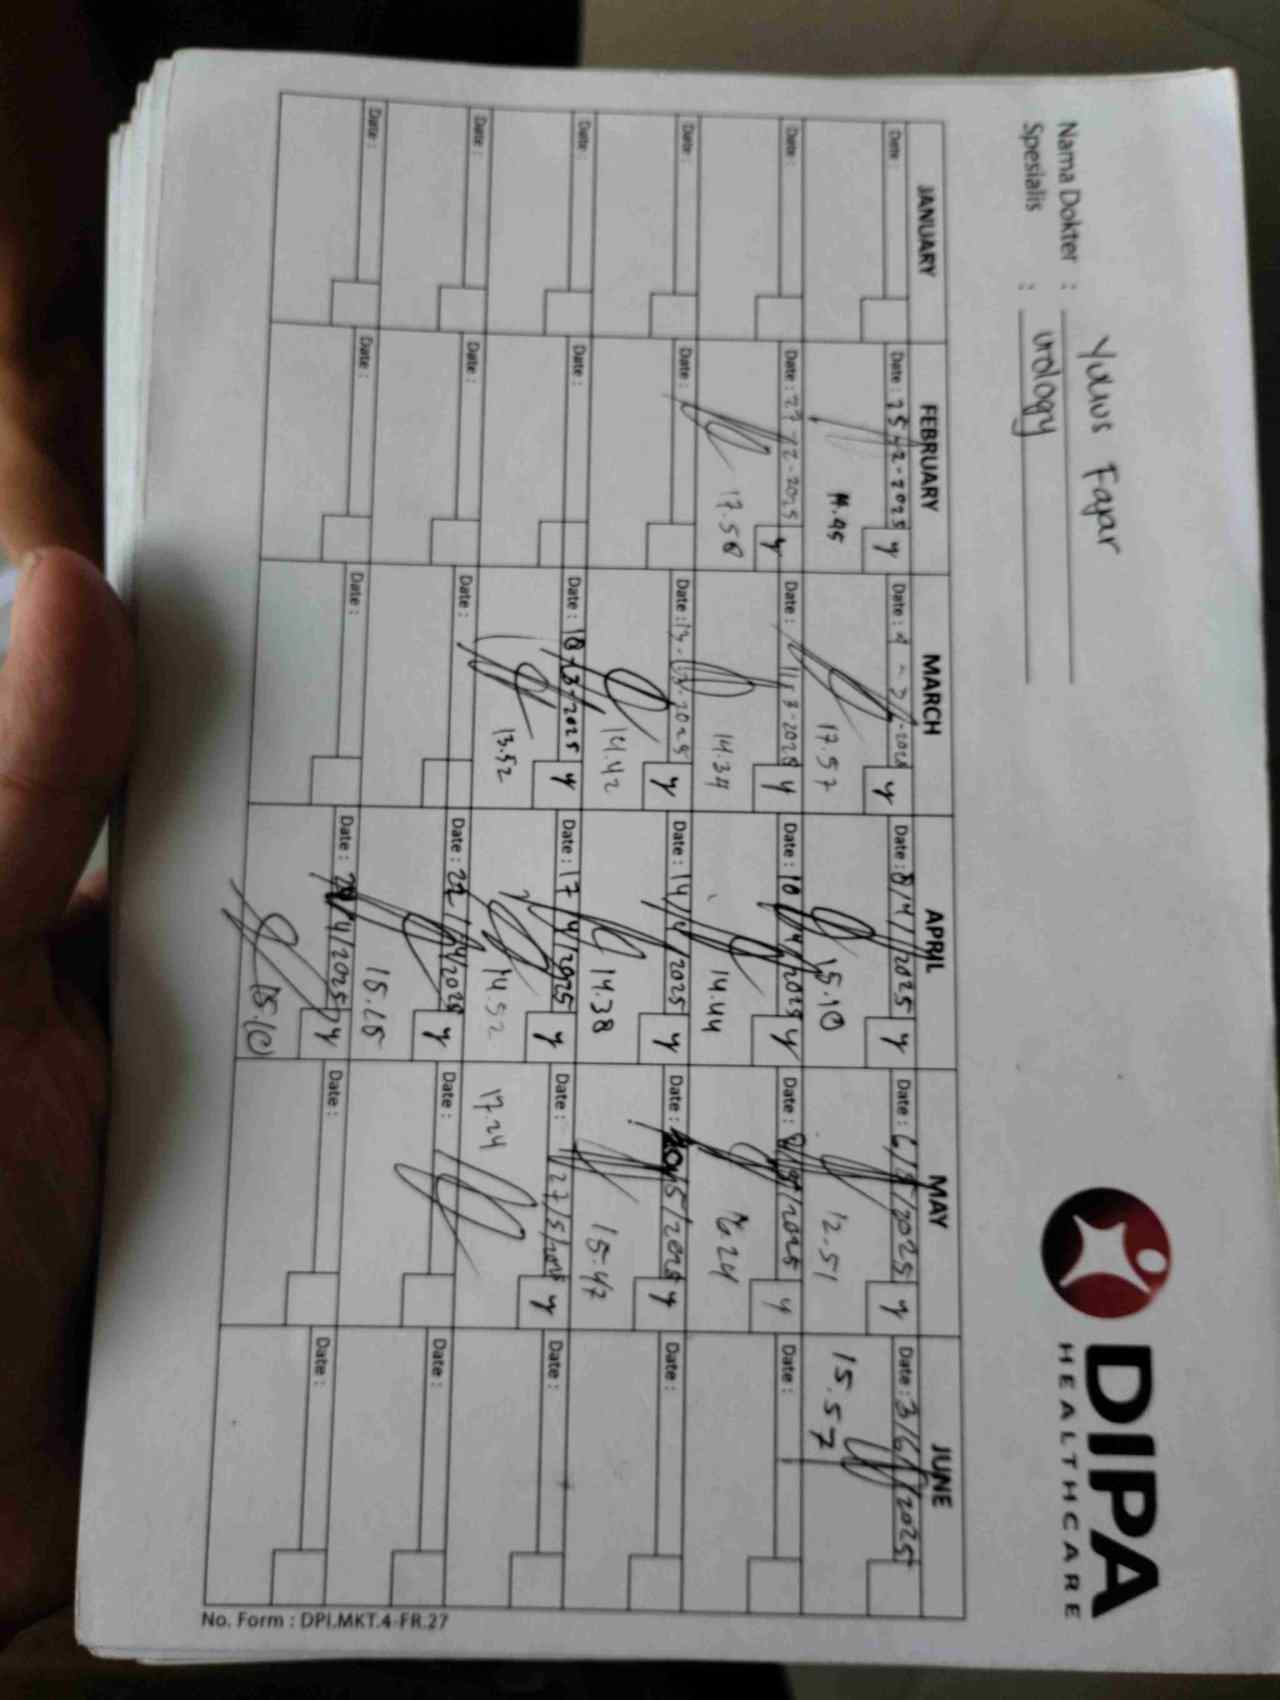 DIPA
HEALTHCARE
Nama Dokter : Yulius Fajar
Spesialis : urology
JANUARY FEBRUARY MARCH APRIL MAY JUNE
Date : Date : 25-2-2025 y Date : 4-3-2025 y Date : 8/4/2025 y Date : 6/5/2025 y Date : 3/6/2025
17.57 15.10 12.51 15.57
Date : Date : 27-2-2025 y Date : 11-3-2025 y Date : 10/4/2025 y Date : 8/5/2025 y Date :
17.58 14.34 14.44
Date : Date : Date : 13-3-2025 y Date : 14/4/2025 y Date : /5/2025 y Date :
14.42 14.38 15.47
Date : Date : Date : 18-3-2025 y Date : 17/4/2025 y Date : 27/5/2025 y Date :
13.52 14.52 17.24
Date : Date : Date : Date : 22/4/2025 y Date : Date :
15.25
Date : Date : Date : Date : 29/4/2025 y Date : Date :
15.10
No. Form : DPI.MKT.4-FR.27